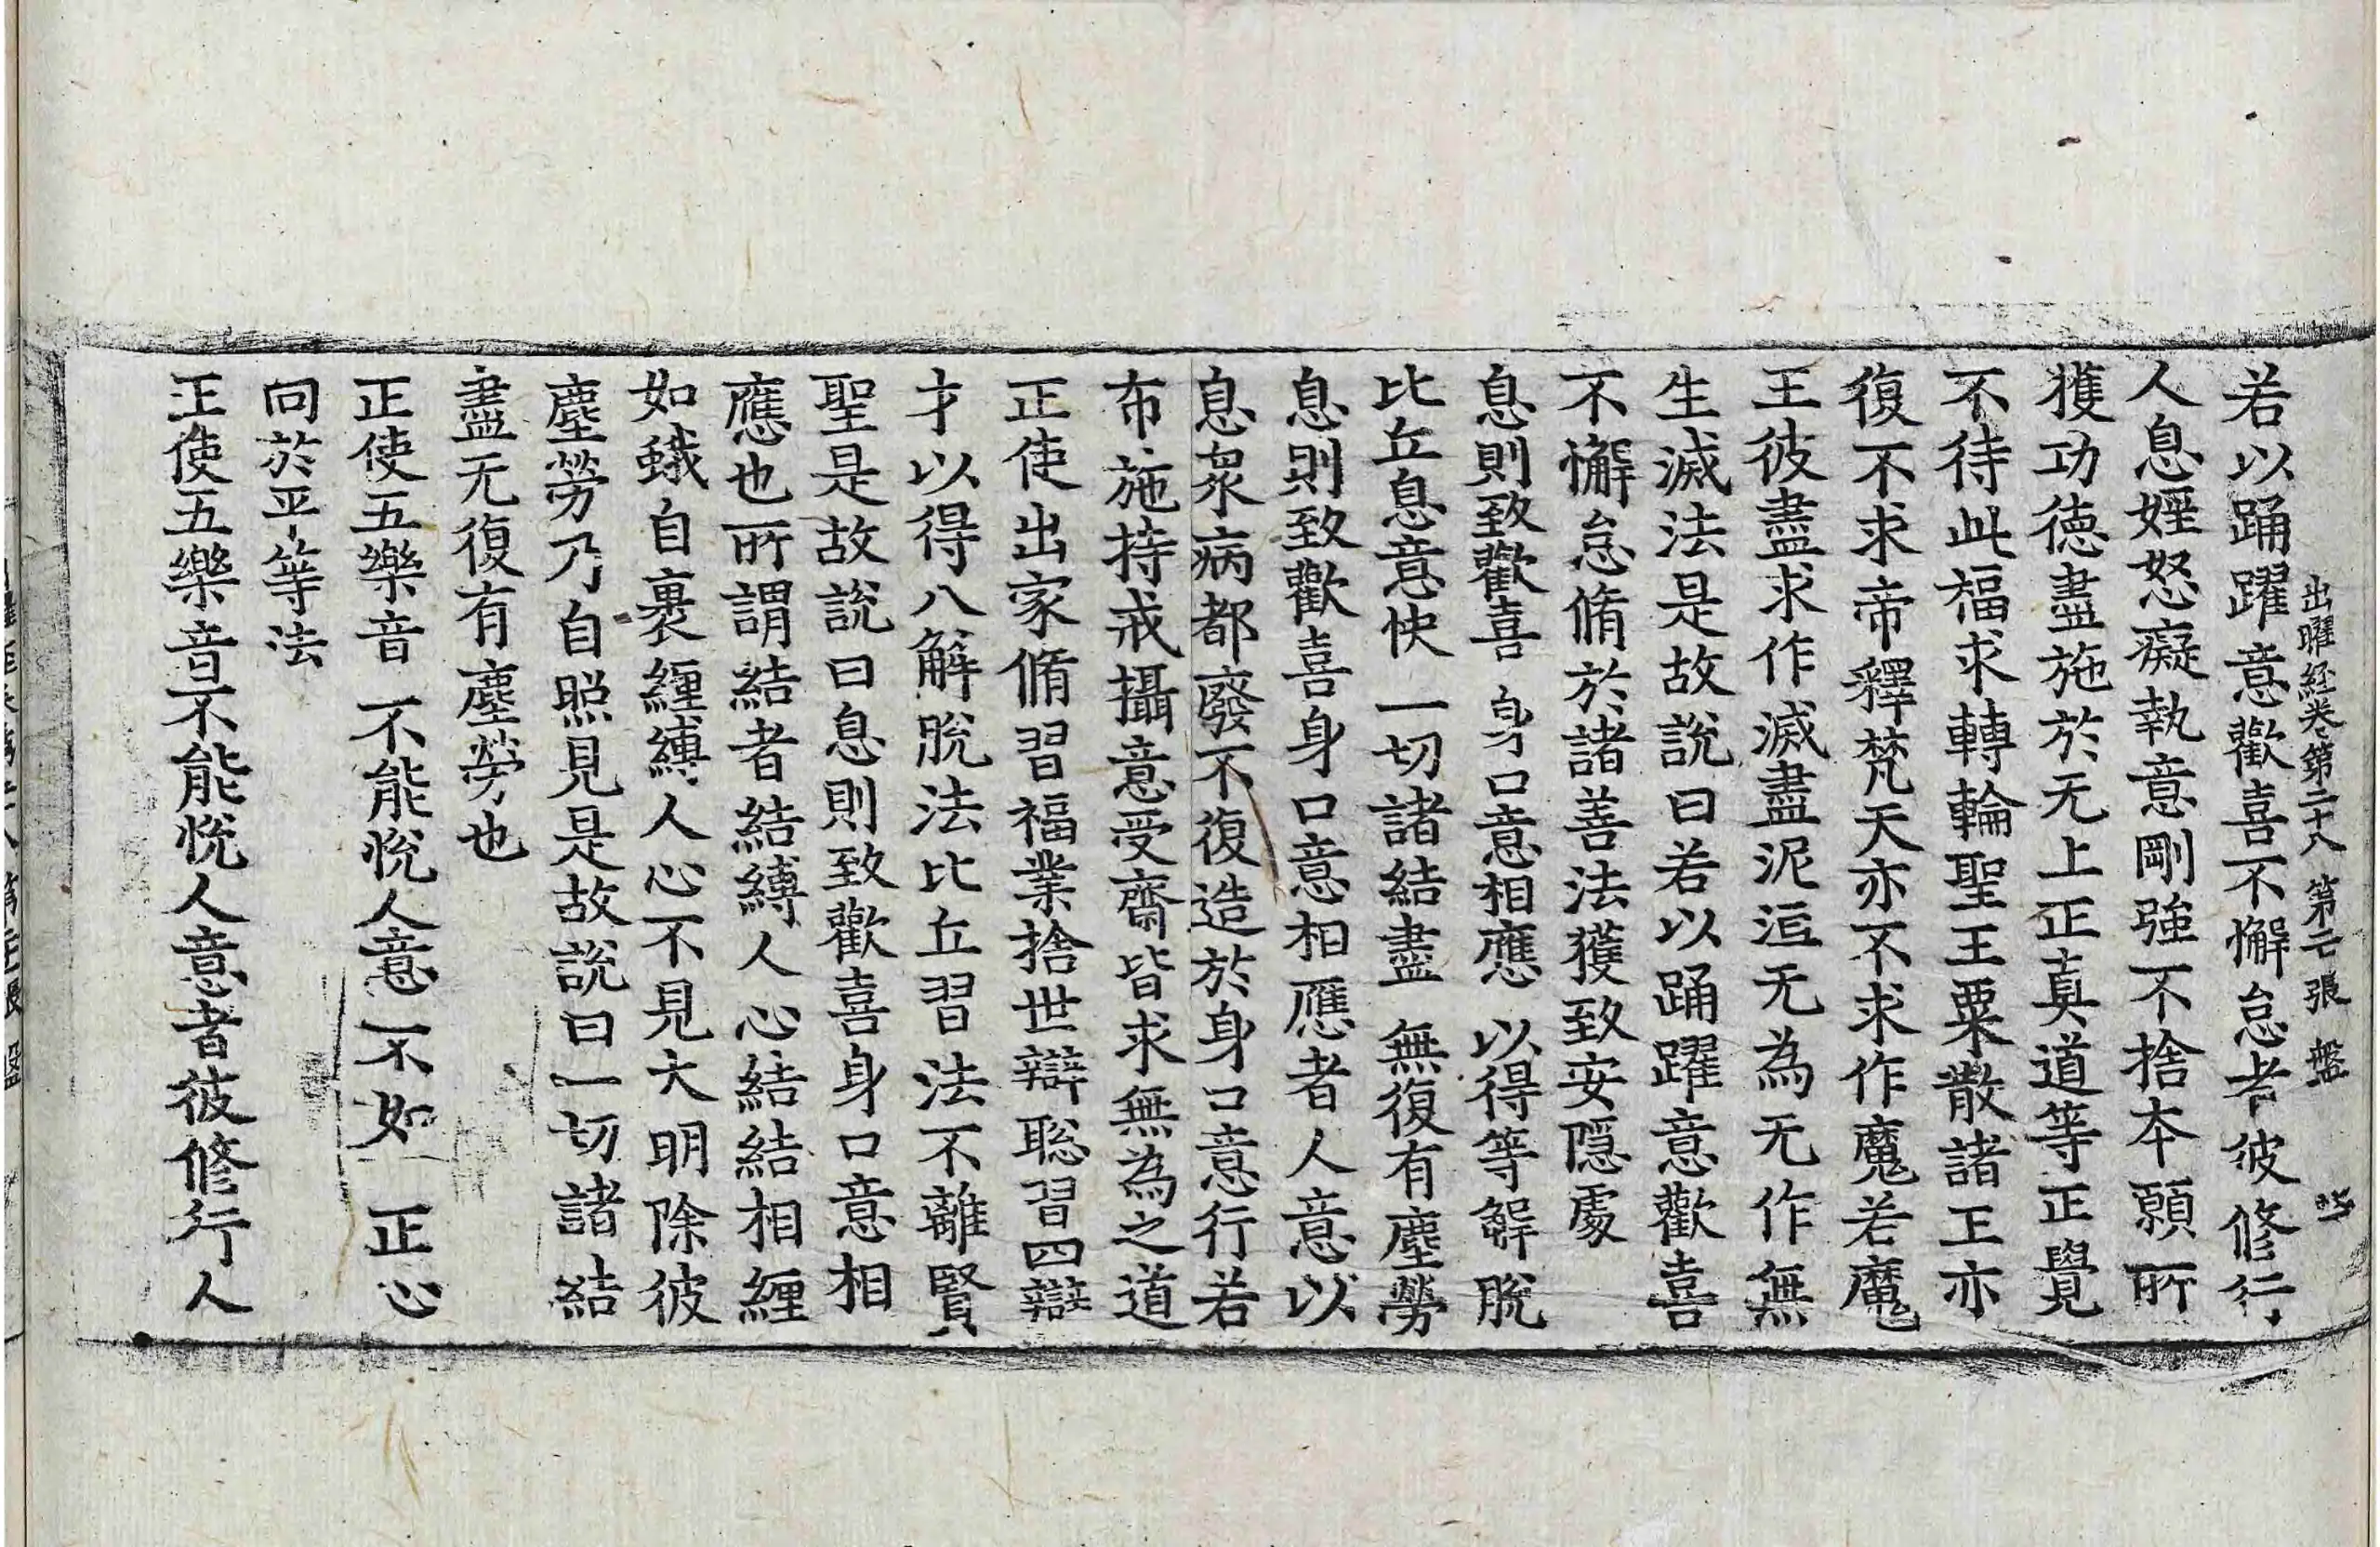 出曜経卷第二十八 第二張 盤
若以踊躍意歡喜不懈怠者彼修行
人息婬怒癡執意剛強不捨本願所
獲功徳盡施於无上正真道等正覺
不待此福求轉輪聖王粟散諸王亦
復不求帝釋梵天亦不求作魔若魔
王彼盡求作滅盡泥洹无為无作無
生滅法是故說曰若以踊躍意歡喜
不懈怠脩於諸善法獲致安隱處
息則致歡喜 身口意相應 以得等解脫
比丘息意快 一切諸結盡 無復有塵勞
息則致歡喜身口意相應者人意以
息衆病都廢不復造於身口意行若
布施持戒攝意受齋皆求無為之道
正使出家脩習福業捨世辯聡習四辯
才以得八解脫法比丘習法不離賢
聖是故說曰息則致歡喜身口意相
應也所謂結者結縛人心結結相纏
如蛾自裹纏縛人心不見大明除彼
塵勞乃自照見是故說曰一切諸結
盡无復有塵勞也
正使五樂音 不能悅人意 不如 正心
向於平等法
正使五樂音不能悅人意者彼修行人